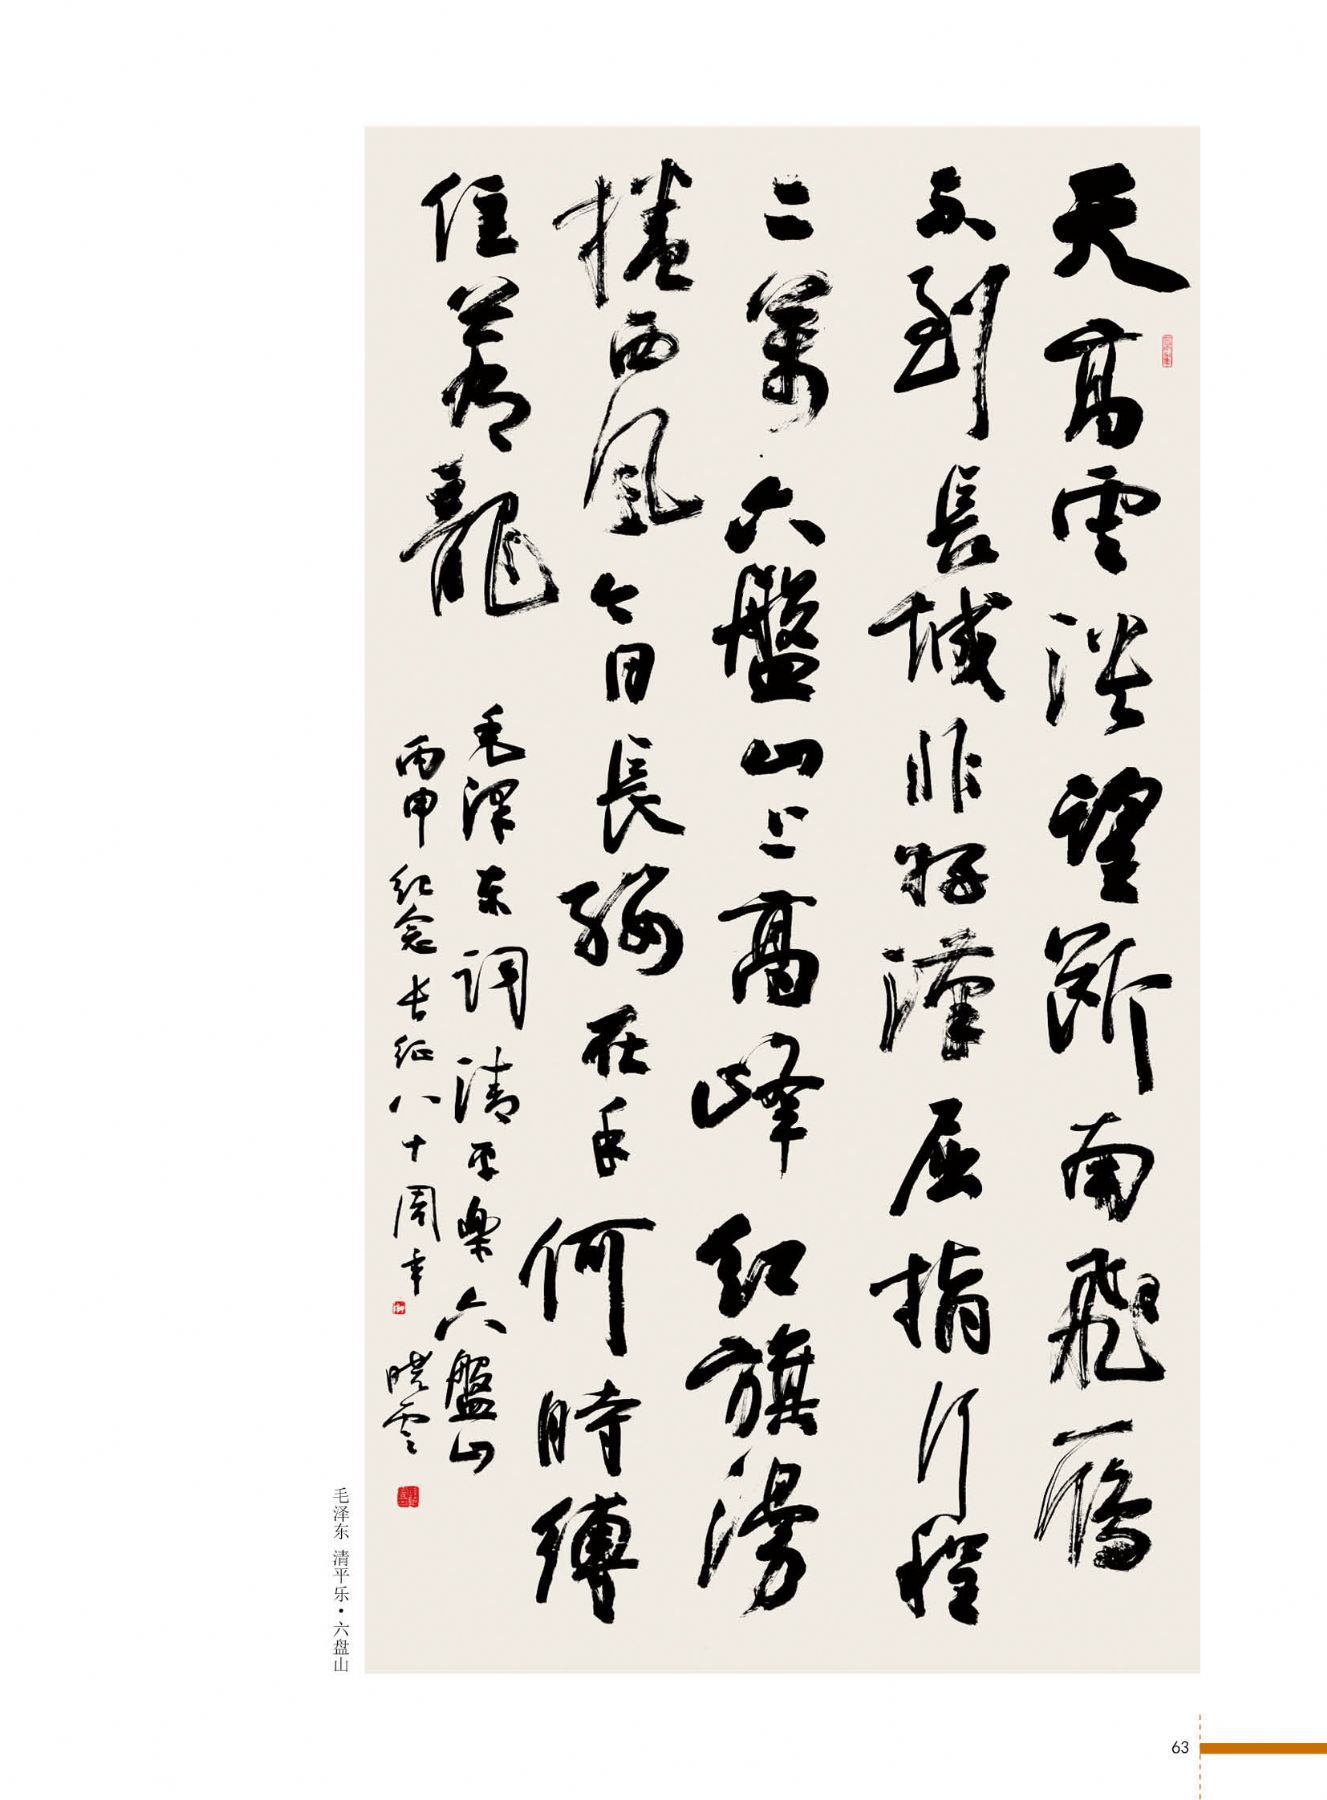 天高雲淡望斷南飛雁
不到長城非好漢屈指行程
二萬六盤山上高峰紅旗漫
捲西風今日長纓在手何時縛
住蒼龍
毛澤东詞清平樂六盤山
丙申纪念长征八十周年 晓雲
毛泽东 清平乐·六盘山
63